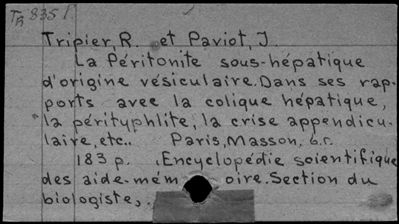 TR 835 P.
Tripier, R. et Paviot, J.
La Péritonite sous-hépatique
d'origine vésiculaire. Dans ses rap-
ports avec la colique hépatique,
la pérityphlite, la crise appendicu-
laire, etc.. Paris, Masson, s.d.
183 p. (Encyclopédie scientifique
des aide-mémoire. Section du
biologiste,.